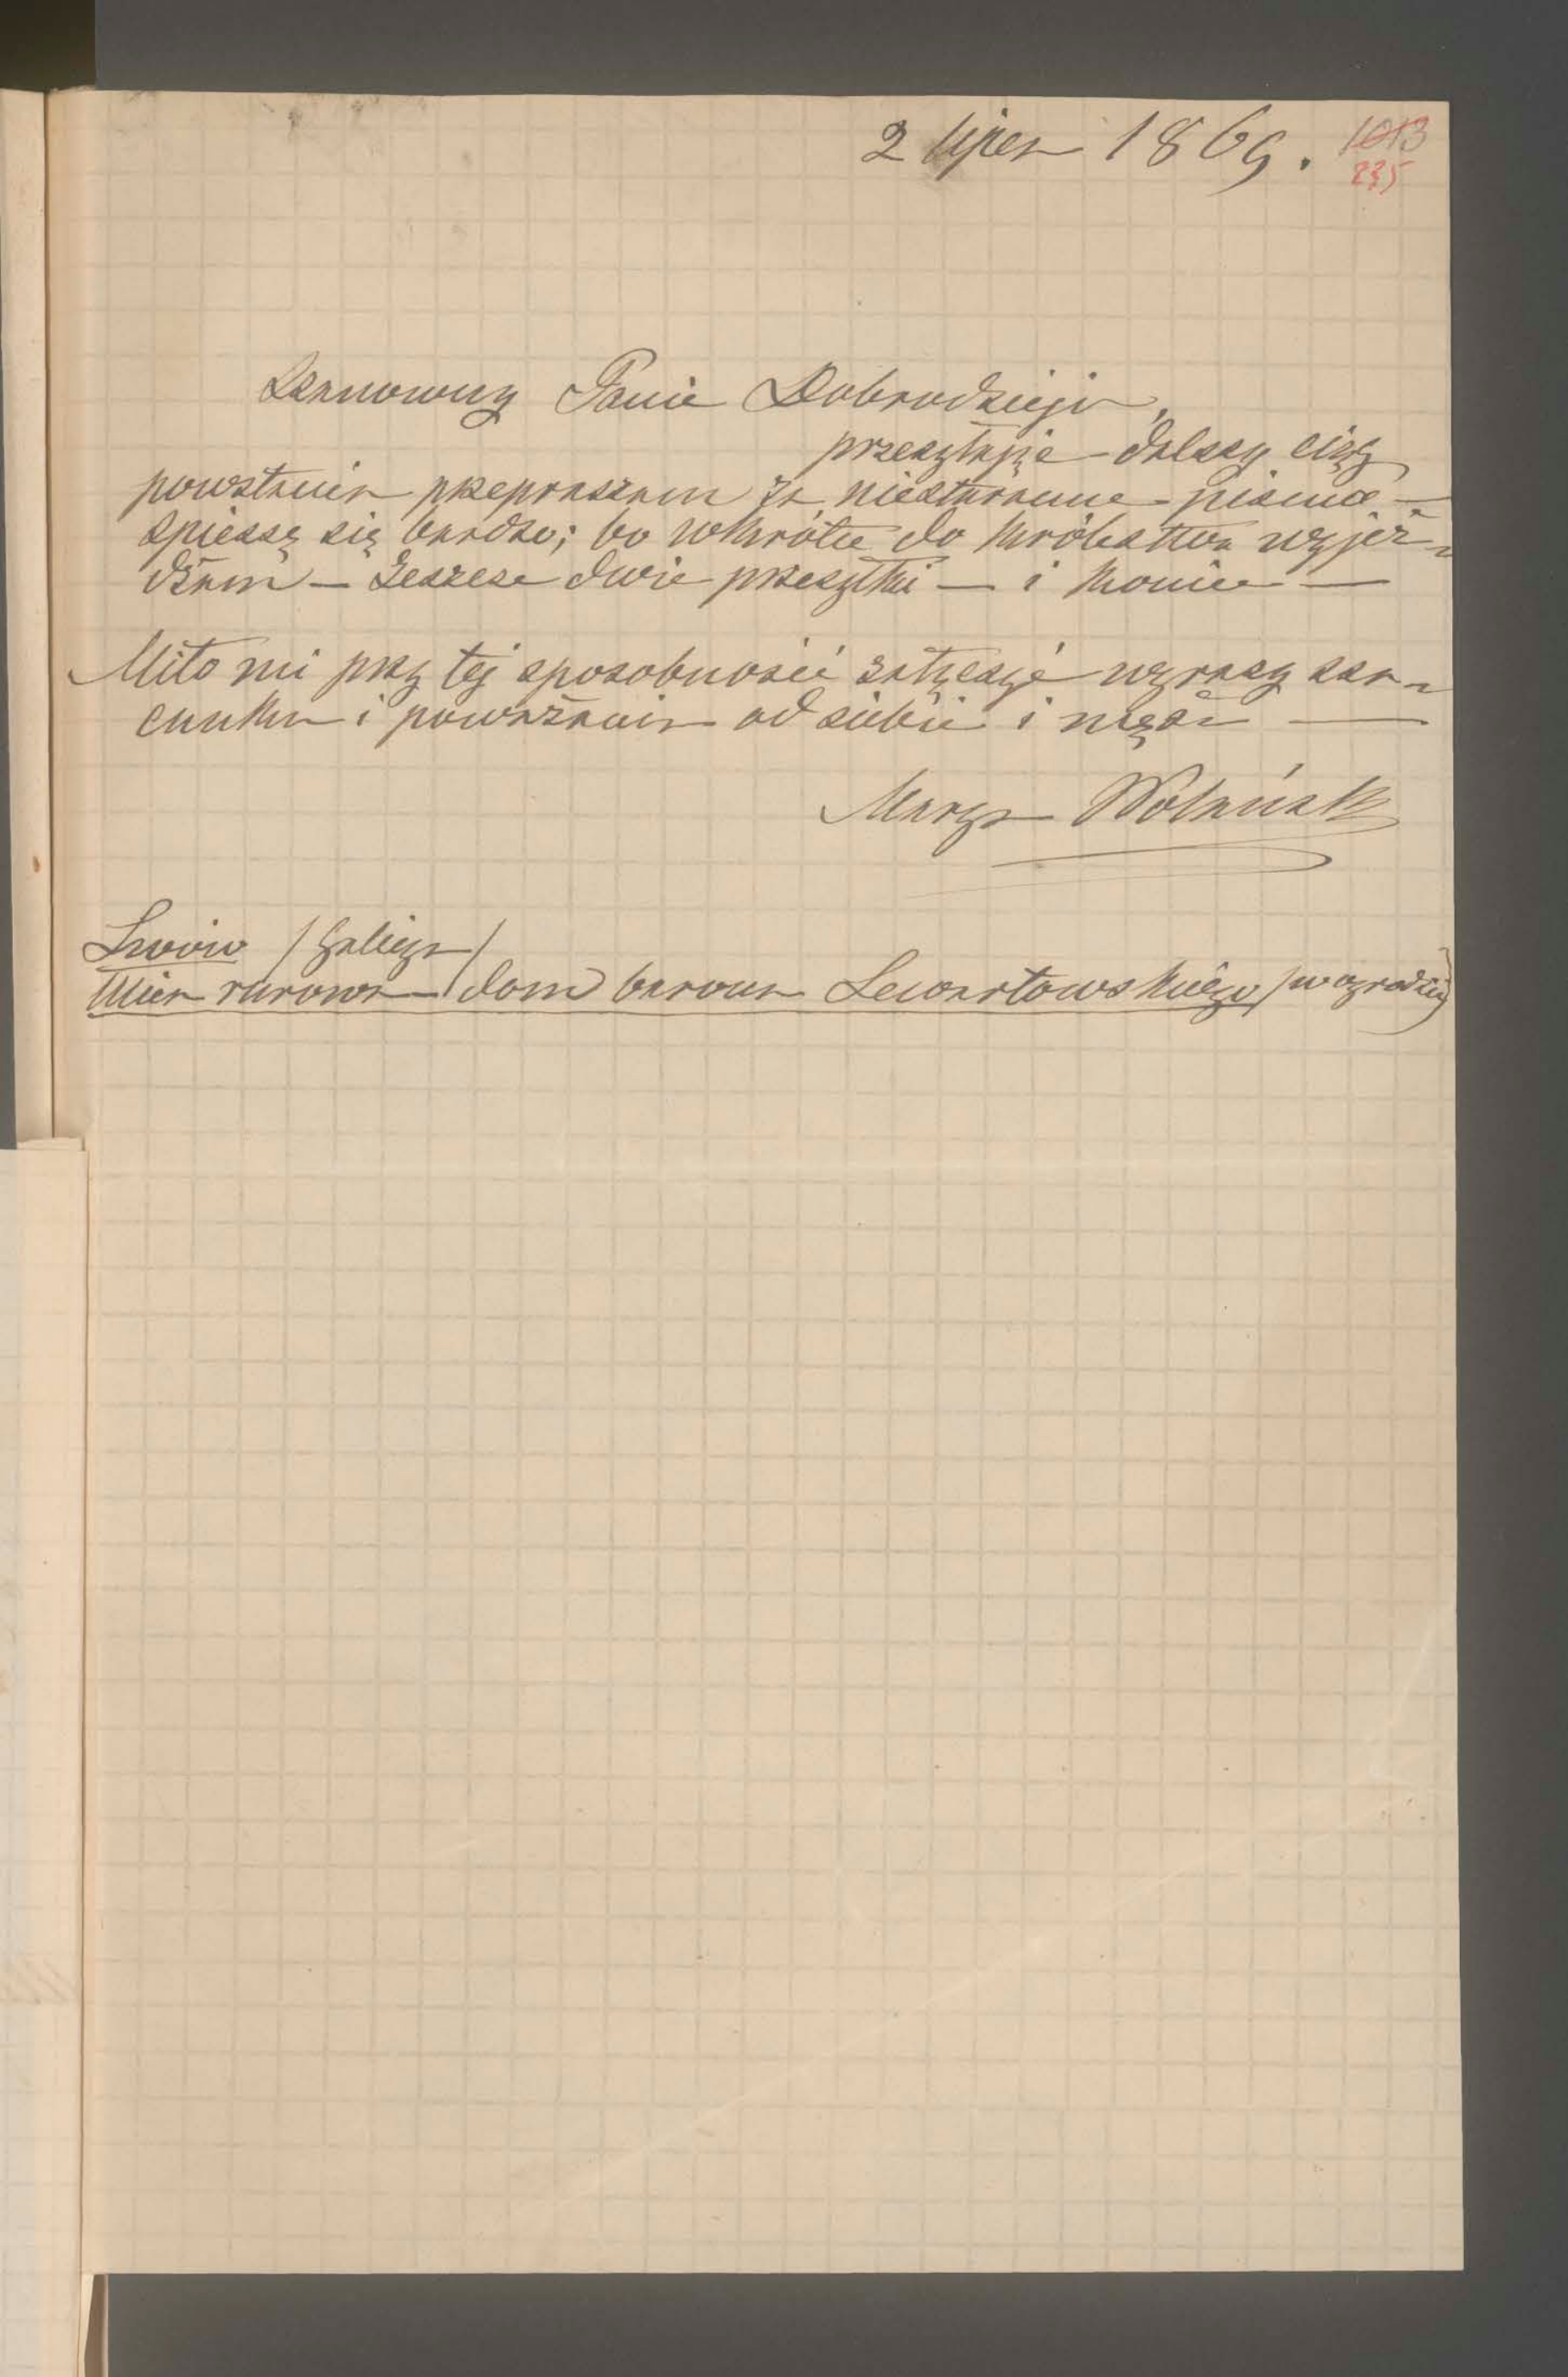 2 lipca 1869.
1013
235
Szanowny Panie Dobrodzieju,
przesyłając dalszy ciąg
powstania przepraszam za niestaranne pismo —
spieszę się bardzo; bo wkrótce do Królestwa wyjeż-
dżam — Jeszcze dwie przesyłki — i koniec —
Miło mi przy tej sposobności załączyć wyrazy sza-
cunku i poważania od siebie i męża —
Marya Wolańska
Lwów / Galicya /
Ulica rurowa / dom barona Lewartowskiego / w ogrodzie)